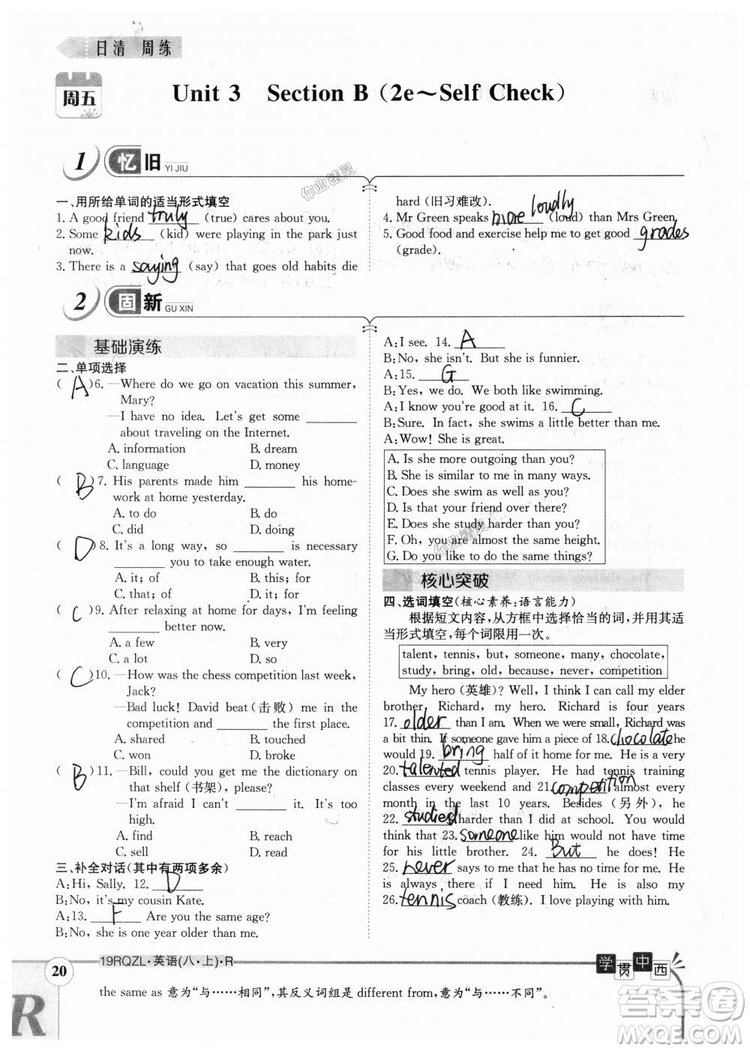 日清 周练
周五
Unit 3 Section B (2e～Self Check)
1 忆旧 YI JIU
一、用所给单词的适当形式填空
1. A good friend truly (true) cares about you.
2. Some kids (kid) were playing in the park just
now.
3. There is a saying (say) that goes old habits die
hard (旧习难改).
4. Mr Green speaks more loudly (loud) than Mrs Green.
5. Good food and exercise help me to get good grades
(grade).
2 固新 GU XIN
基础演练
二、单项选择
( A )6. —Where do we go on vacation this summer,
Mary?
—I have no idea. Let's get some ______
about traveling on the Internet.
A. information B. dream
C. language D. money
( B )7. His parents made him ______ his home-
work at home yesterday.
A. to do B. do
C. did D. doing
( D )8. It's a long way, so ______ is necessary
______ you to take enough water.
A. this; of B. it; of
C. that; of D. it; for
( C )9. After relaxing at home for days, I'm feeling
______ better now.
A. a few B. very
C. a lot D. so
( C )10. —How was the chess competition last week,
Jack?
—Bad luck! David beat (击败) me in the
competition and ______ the first place.
A. shared B. touched
C. won D. broke
( B )11. —Bill, could you get me the dictionary on
that shelf (书架), please?
—I'm afraid I can't ______ it.
A. find B. reach
C. sell D. read
三、补全对话(其中有两项多余)
A: Hi, Sally. 12. D
B: No, it's my cousin Kate.
A: 13. F Are you the same age?
B: No, she is one year older than me.
A: I see. 14. A
B: No, she isn't. But she is funnier.
A: 15. G
B: Yes, we do. We both like swimming.
A: I know you're good at it. 16. C
B: Sure. In fact, she swims a little better than me.
A: Wow! She is great.
A. Is she more outgoing than you?
B. She is similar to me in many ways.
C. Does she swim as well as you?
D. Is that your friend over there?
E. Does she study harder than you?
F. Oh, you are almost the same height.
G. Do you like to do the same things?
核心突破
四、选词填空(核心素养:语言能力)
根据短文内容,从方框中选择恰当的词,并用其适
当形式填空,每个词限用一次。
talent, tennis, but, someone, many, chocolate,
study, bring, old, because, never, competition
My hero (英雄)? Well, I think I can call my elder
brother, Richard, my hero. Richard is four years
17. older than I am. When we were small, Richard was
a bit thin. If someone gave him a piece of 18. chocolate he
would 19. bring half of it home for me. He is a very
20. talented tennis player. He had tennis training
classes every weekend and 21. competition almost every
month in the last 10 years. Besides (另外), he
22. studied harder than I did at school. You would
think that 23. someone like him would not have time
for his little brother. 24. But he does! He
25. never says to me that he is tired or busy. He
is always there if I need him. He is also my
26. tennis coach (教练). I think he is the best!
20
19RQZL·英语(八·上)·R
学贯中西
the same as 意为“与……相同”,其反义词组是 different from,意为“与……不同”。
R
答案圈
MXQE.COM